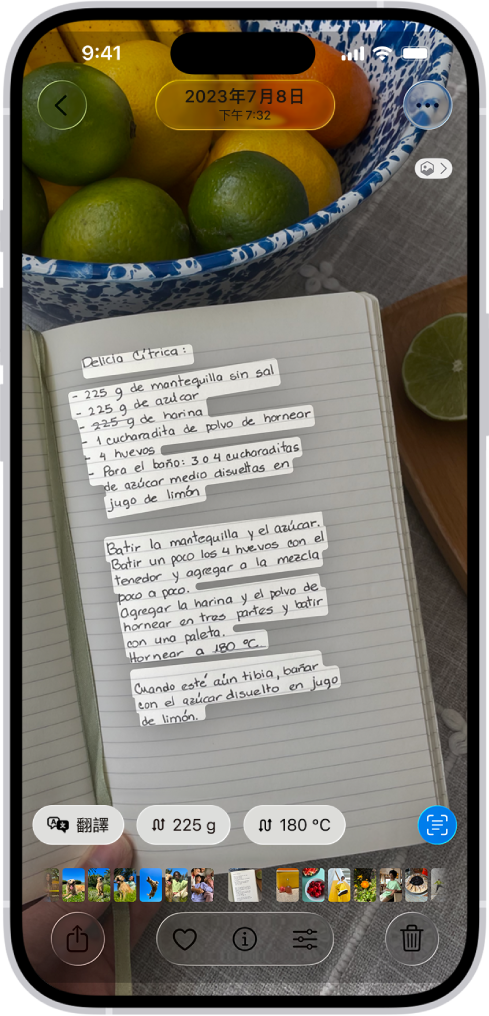 9:41
2023年7月8日
下午7:32
Delicia Cítrica:
- 225 g de mantequilla sin sal
- 225 g de azúcar
- 225 g de harina
- 1 cucharadita de polvo de hornear
- 4 huevos
- Para el baño: 3 o 4 cucharaditas
de azúcar medio disueltas en
jugo de limón
Batir la mantequilla y el azúcar.
Batir un poco los 4 huevos con el
tenedor y agregar a la mezcla
poco a poco.
Agregar la harina y el polvo de
hornear en tres partes y batir
con una paleta.
Hornear a 180 °C.
Cuando esté aún tibia, bañar
con el azúcar disuelto en jugo
de limón.
翻譯
225 g
180 °C